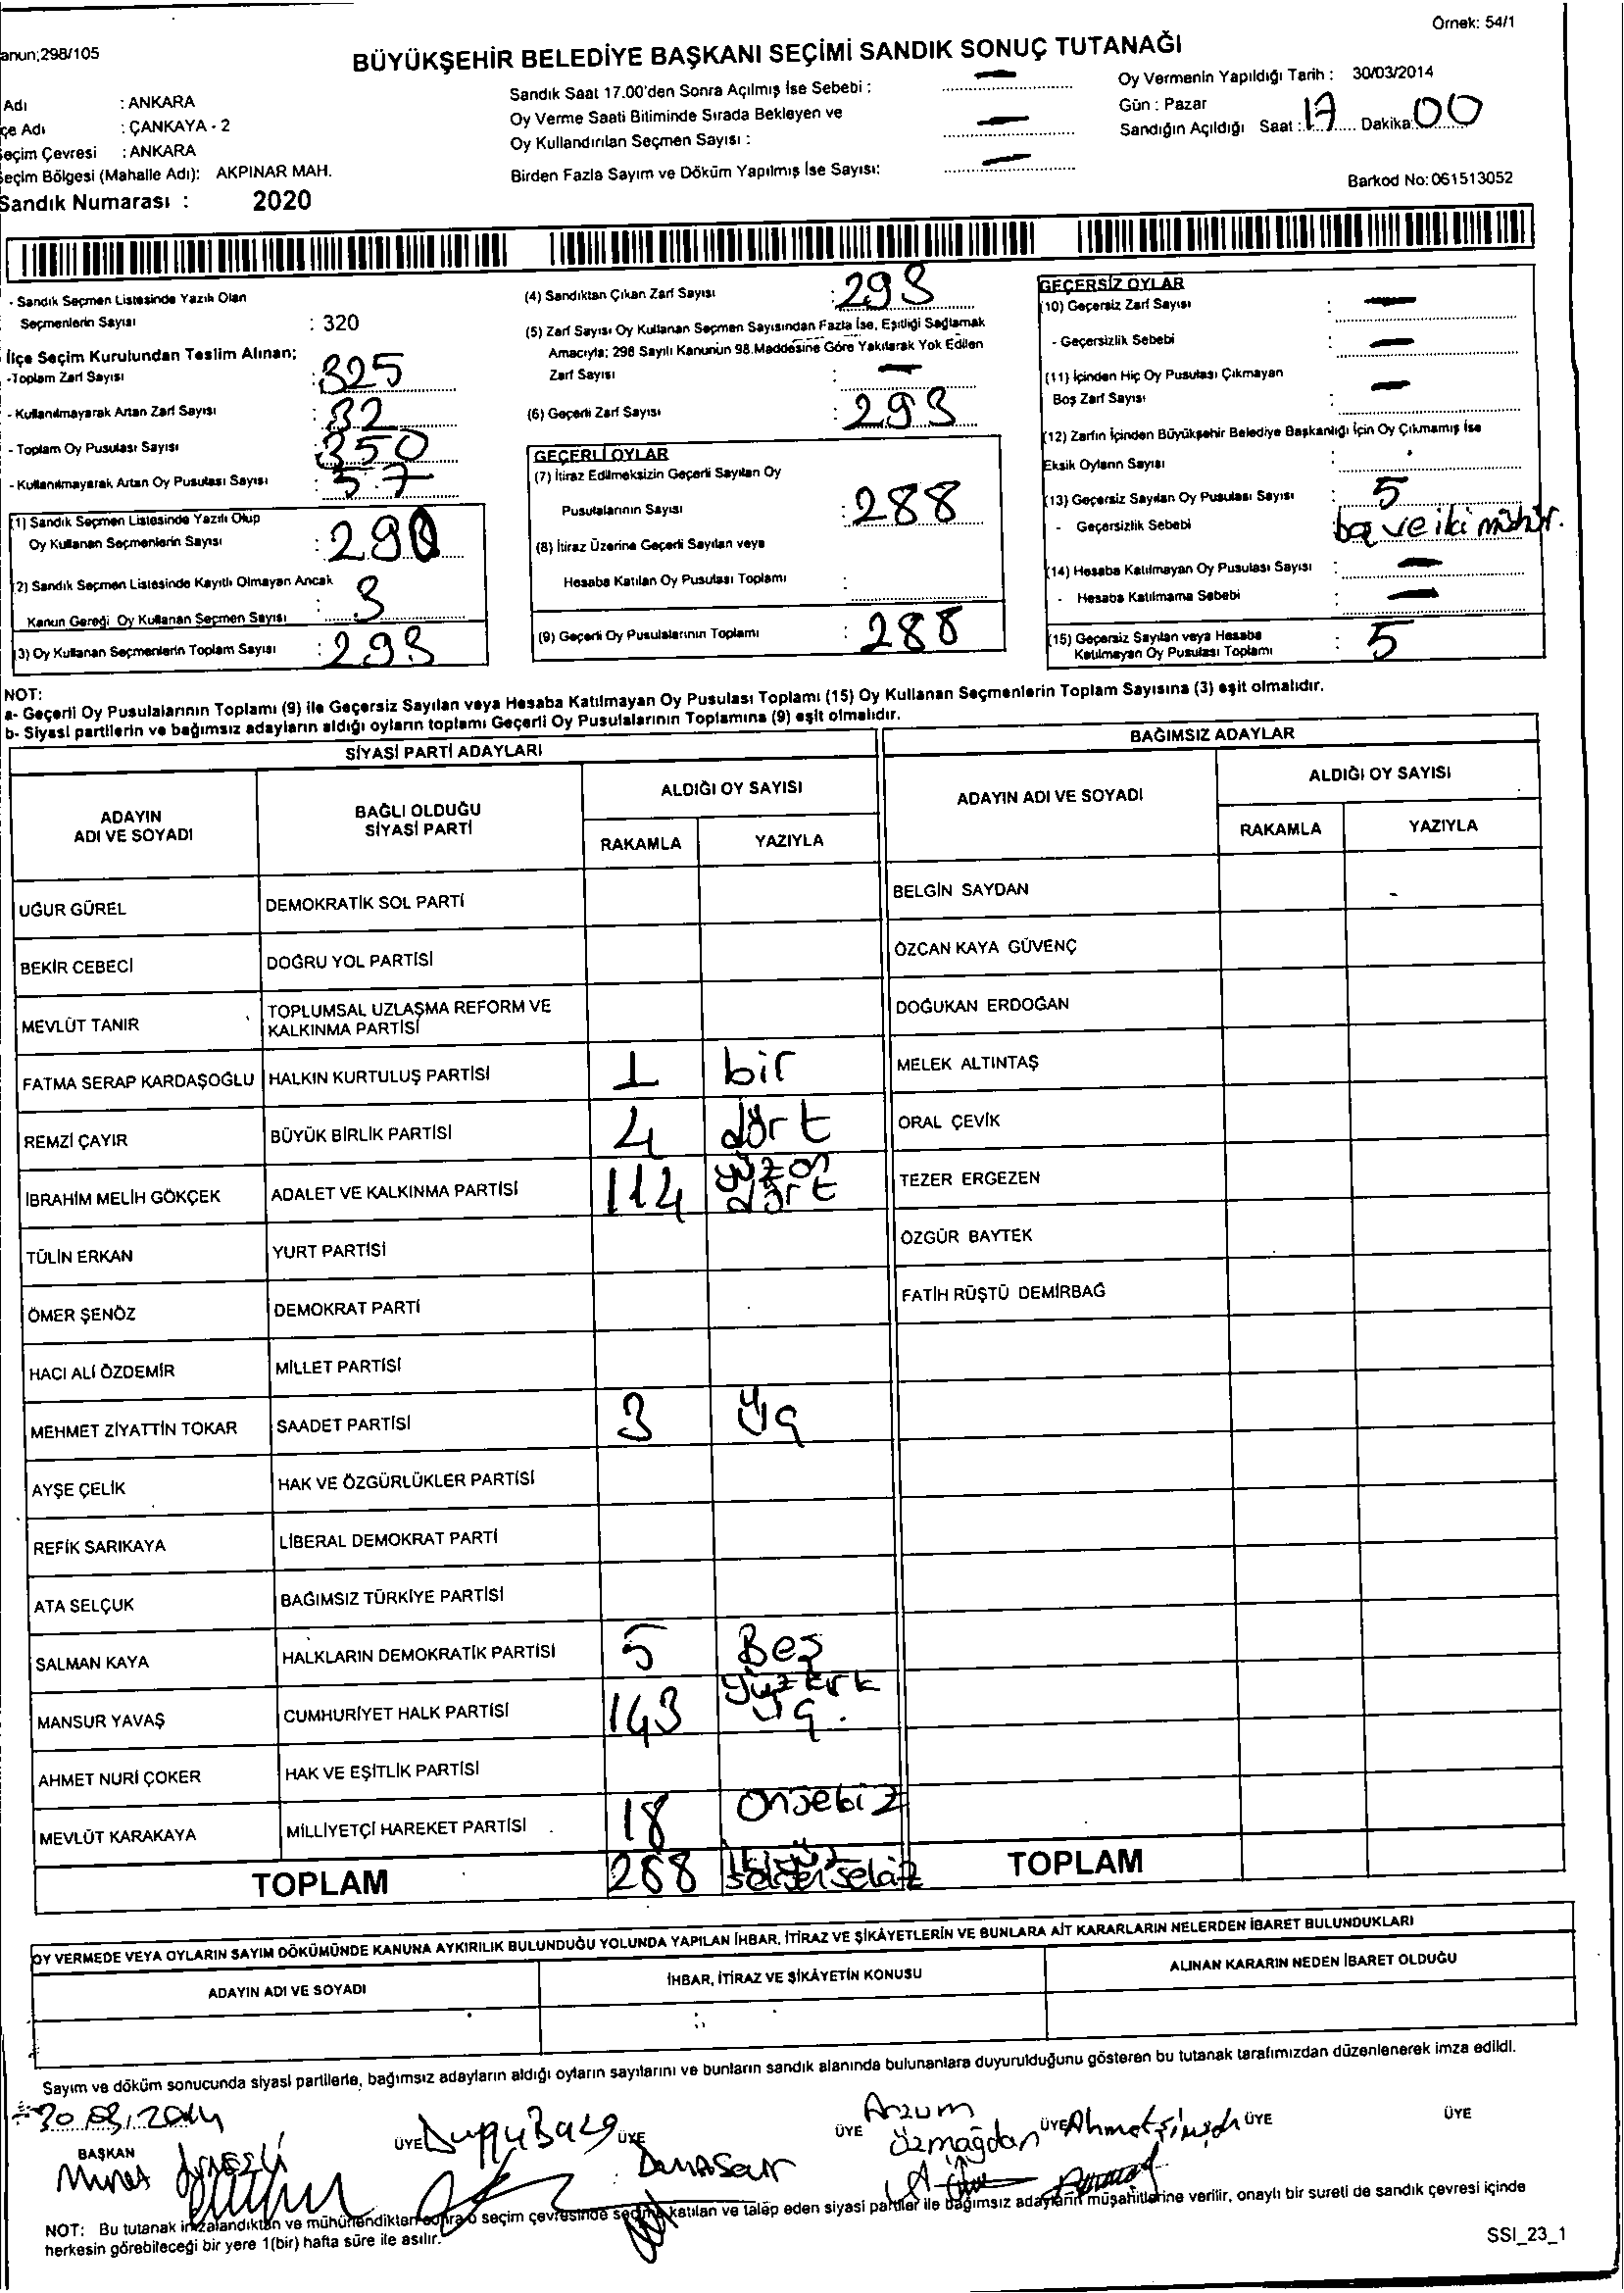 Örnek: 54/1
anun;298/105
BÜYÜKŞEHİR BELEDİYE BAŞKANI SEÇİMİ SANDIK SONUÇ TUTANAĞI
Adı : ANKARA
çe Adı : ÇANKAYA - 2
eçim Çevresi : ANKARA
eçim Bölgesi (Mahalle Adı): AKPINAR MAH.
Sandık Numarası : 2020
Sandık Saat 17.00'den Sonra Açılmış İse Sebebi : —
Oy Verme Saati Bitiminde Sırada Bekleyen ve
Oy Kullandırılan Seçmen Sayısı : —
Birden Fazla Sayım ve Döküm Yapılmış İse Sayısı: —
Oy Vermenin Yapıldığı Tarih : 30/03/2014
Gün : Pazar
Sandığın Açıldığı Saat : 17 Dakika: 00
Barkod No: 061513052
- Sandık Seçmen Listesinde Yazılı Olan
Seçmenlerin Sayısı : 320
İlçe Seçim Kurulundan Teslim Alınan;
-Toplam Zarf Sayısı : 325
- Kullanılmayarak Artan Zarf Sayısı : 32
- Toplam Oy Pusulası Sayısı : 350
- Kullanılmayarak Artan Oy Pusulası Sayısı : 57
(1) Sandık Seçmen Listesinde Yazılı Olup
Oy Kullanan Seçmenlerin Sayısı : 290
(2) Sandık Seçmen Listesinde Kayıtlı Olmayan Ancak
Kanun Gereği Oy Kullanan Seçmen Sayısı : 3
(3) Oy Kullanan Seçmenlerin Toplam Sayısı : 293
(4) Sandıktan Çıkan Zarf Sayısı : 293
(5) Zarf Sayısı Oy Kullanan Seçmen Sayısından Fazla İse, Eşitliği Sağlamak
Amacıyla; 298 Sayılı Kanunun 98.Maddesine Göre Yakılarak Yok Edilen
Zarf Sayısı : —
(6) Geçerli Zarf Sayısı : 293
GEÇERLİ OYLAR
(7) İtiraz Edilmeksizin Geçerli Sayılan Oy
Pusulalarının Sayısı : 288
(8) İtiraz Üzerine Geçerli Sayılan veya
Hesaba Katılan Oy Pusulası Toplamı :
(9) Geçerli Oy Pusulalarının Toplamı : 288
GEÇERSİZ OYLAR
(10) Geçersiz Zarf Sayısı : —
- Geçersizlik Sebebi : —
(11) İçinden Hiç Oy Pusulası Çıkmayan
Boş Zarf Sayısı : —
(12) Zarfın İçinden Büyükşehir Belediye Başkanlığı İçin Oy Çıkmamış İse
Eksik Oyların Sayısı :
(13) Geçersiz Sayılan Oy Pusulası Sayısı : 5
- Geçersizlik Sebebi : boş ve iki mühür.
(14) Hesaba Katılmayan Oy Pusulası Sayısı : —
- Hesaba Katılmama Sebebi : —
(15) Geçersiz Sayılan veya Hesaba
Katılmayan Oy Pusulası Toplamı : 5
NOT:
a- Geçerli Oy Pusulalarının Toplamı (9) ile Geçersiz Sayılan veya Hesaba Katılmayan Oy Pusulası Toplamı (15) Oy Kullanan Seçmenlerin Toplam Sayısına (3) eşit olmalıdır.
b- Siyasi partilerin ve bağımsız adayların aldığı oyların toplamı Geçerli Oy Pusulalarının Toplamına (9) eşit olmalıdır.
SİYASİ PARTİ ADAYLARI
ADAYIN
ADI VE SOYADI
BAĞLI OLDUĞU
SİYASİ PARTİ
ALDIĞI OY SAYISI
RAKAMLA YAZIYLA
UĞUR GÜREL DEMOKRATİK SOL PARTİ
BEKİR CEBECİ DOĞRU YOL PARTİSİ
MEVLÜT TANIR TOPLUMSAL UZLAŞMA REFORM VE
KALKINMA PARTİSİ
FATMA SERAP KARDAŞOĞLU HALKIN KURTULUŞ PARTİSİ 1 bir
REMZİ ÇAYIR BÜYÜK BİRLİK PARTİSİ 4 dört
İBRAHİM MELİH GÖKÇEK ADALET VE KALKINMA PARTİSİ 114 yüzon
dört
TÜLİN ERKAN YURT PARTİSİ
ÖMER ŞENÖZ DEMOKRAT PARTİ
HACI ALİ ÖZDEMİR MİLLET PARTİSİ
MEHMET ZİYATTİN TOKAR SAADET PARTİSİ 3 üç
AYŞE ÇELİK HAK VE ÖZGÜRLÜKLER PARTİSİ
REFİK SARIKAYA LİBERAL DEMOKRAT PARTİ
ATA SELÇUK BAĞIMSIZ TÜRKİYE PARTİSİ
SALMAN KAYA HALKLARIN DEMOKRATİK PARTİSİ 5 Beş
MANSUR YAVAŞ CUMHURİYET HALK PARTİSİ 143 yüzkırk
üç.
AHMET NURİ ÇOKER HAK VE EŞİTLİK PARTİSİ
MEVLÜT KARAKAYA MİLLİYETÇİ HAREKET PARTİSİ 18 Onsekiz
TOPLAM 288 ikiyüz
seksensekiz
BAĞIMSIZ ADAYLAR
ADAYIN ADI VE SOYADI
ALDIĞI OY SAYISI
RAKAMLA YAZIYLA
BELGİN SAYDAN
ÖZCAN KAYA GÜVENÇ
DOĞUKAN ERDOĞAN
MELEK ALTINTAŞ
ORAL ÇEVİK
TEZER ERGEZEN
ÖZGÜR BAYTEK
FATİH RÜŞTÜ DEMİRBAĞ
TOPLAM
OY VERMEDE VEYA OYLARIN SAYIM DÖKÜMÜNDE KANUNA AYKIRILIK BULUNDUĞU YOLUNDA YAPILAN İHBAR, İTİRAZ VE ŞİKÂYETLERİN VE BUNLARA AİT KARARLARIN NELERDEN İBARET BULUNDUKLARI
ADAYIN ADI VE SOYADI İHBAR, İTİRAZ VE ŞİKÂYETİN KONUSU ALINAN KARARIN NEDEN İBARET OLDUĞU
Sayım ve döküm sonucunda siyasi partilerle, bağımsız adayların aldığı oyların sayılarını ve bunların sandık alanında bulunanlara duyurulduğunu gösteren bu tutanak tarafımızdan düzenlenerek imza edildi.
30.03.2014
BAŞKAN ÜYE ÜYE ÜYE Arzum
Özmağdan ÜYE Ahmet Şimşek ÜYE ÜYE
NOT: Bu tutanak imzalandıktan ve mühürlendikten sonra o seçim çevresinde seçime katılan ve talep eden siyasi partiler ile bağımsız adayların müşahitlerine verilir, onaylı bir sureti de sandık çevresi içinde
herkesin görebileceği bir yere 1(bir) hafta süre ile asılır.
SSI_23_1